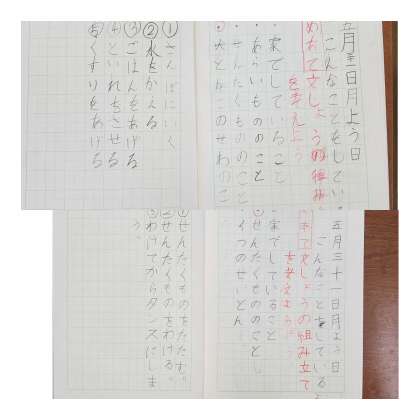 五月三十一日月よう日
こんなことをしている。
めあて文しょうの組み
を考えよう
・家でしていること
・あらいもののこと
・せんたくもののこと
・犬とかめのせわのこ
①さんぽにいく
②水をかえる
③ごはんをあげる
④といれをさせる
⑤くすりをあげる
五月三十一日月よう日
こんなことをしている
めあて文しょうの組み立て
を考えよう
・家でしていること
・せんたくもののこと
①せんたくものをたたむ。
②せんたくものをわける。
③わけてからタンスにしま
う。